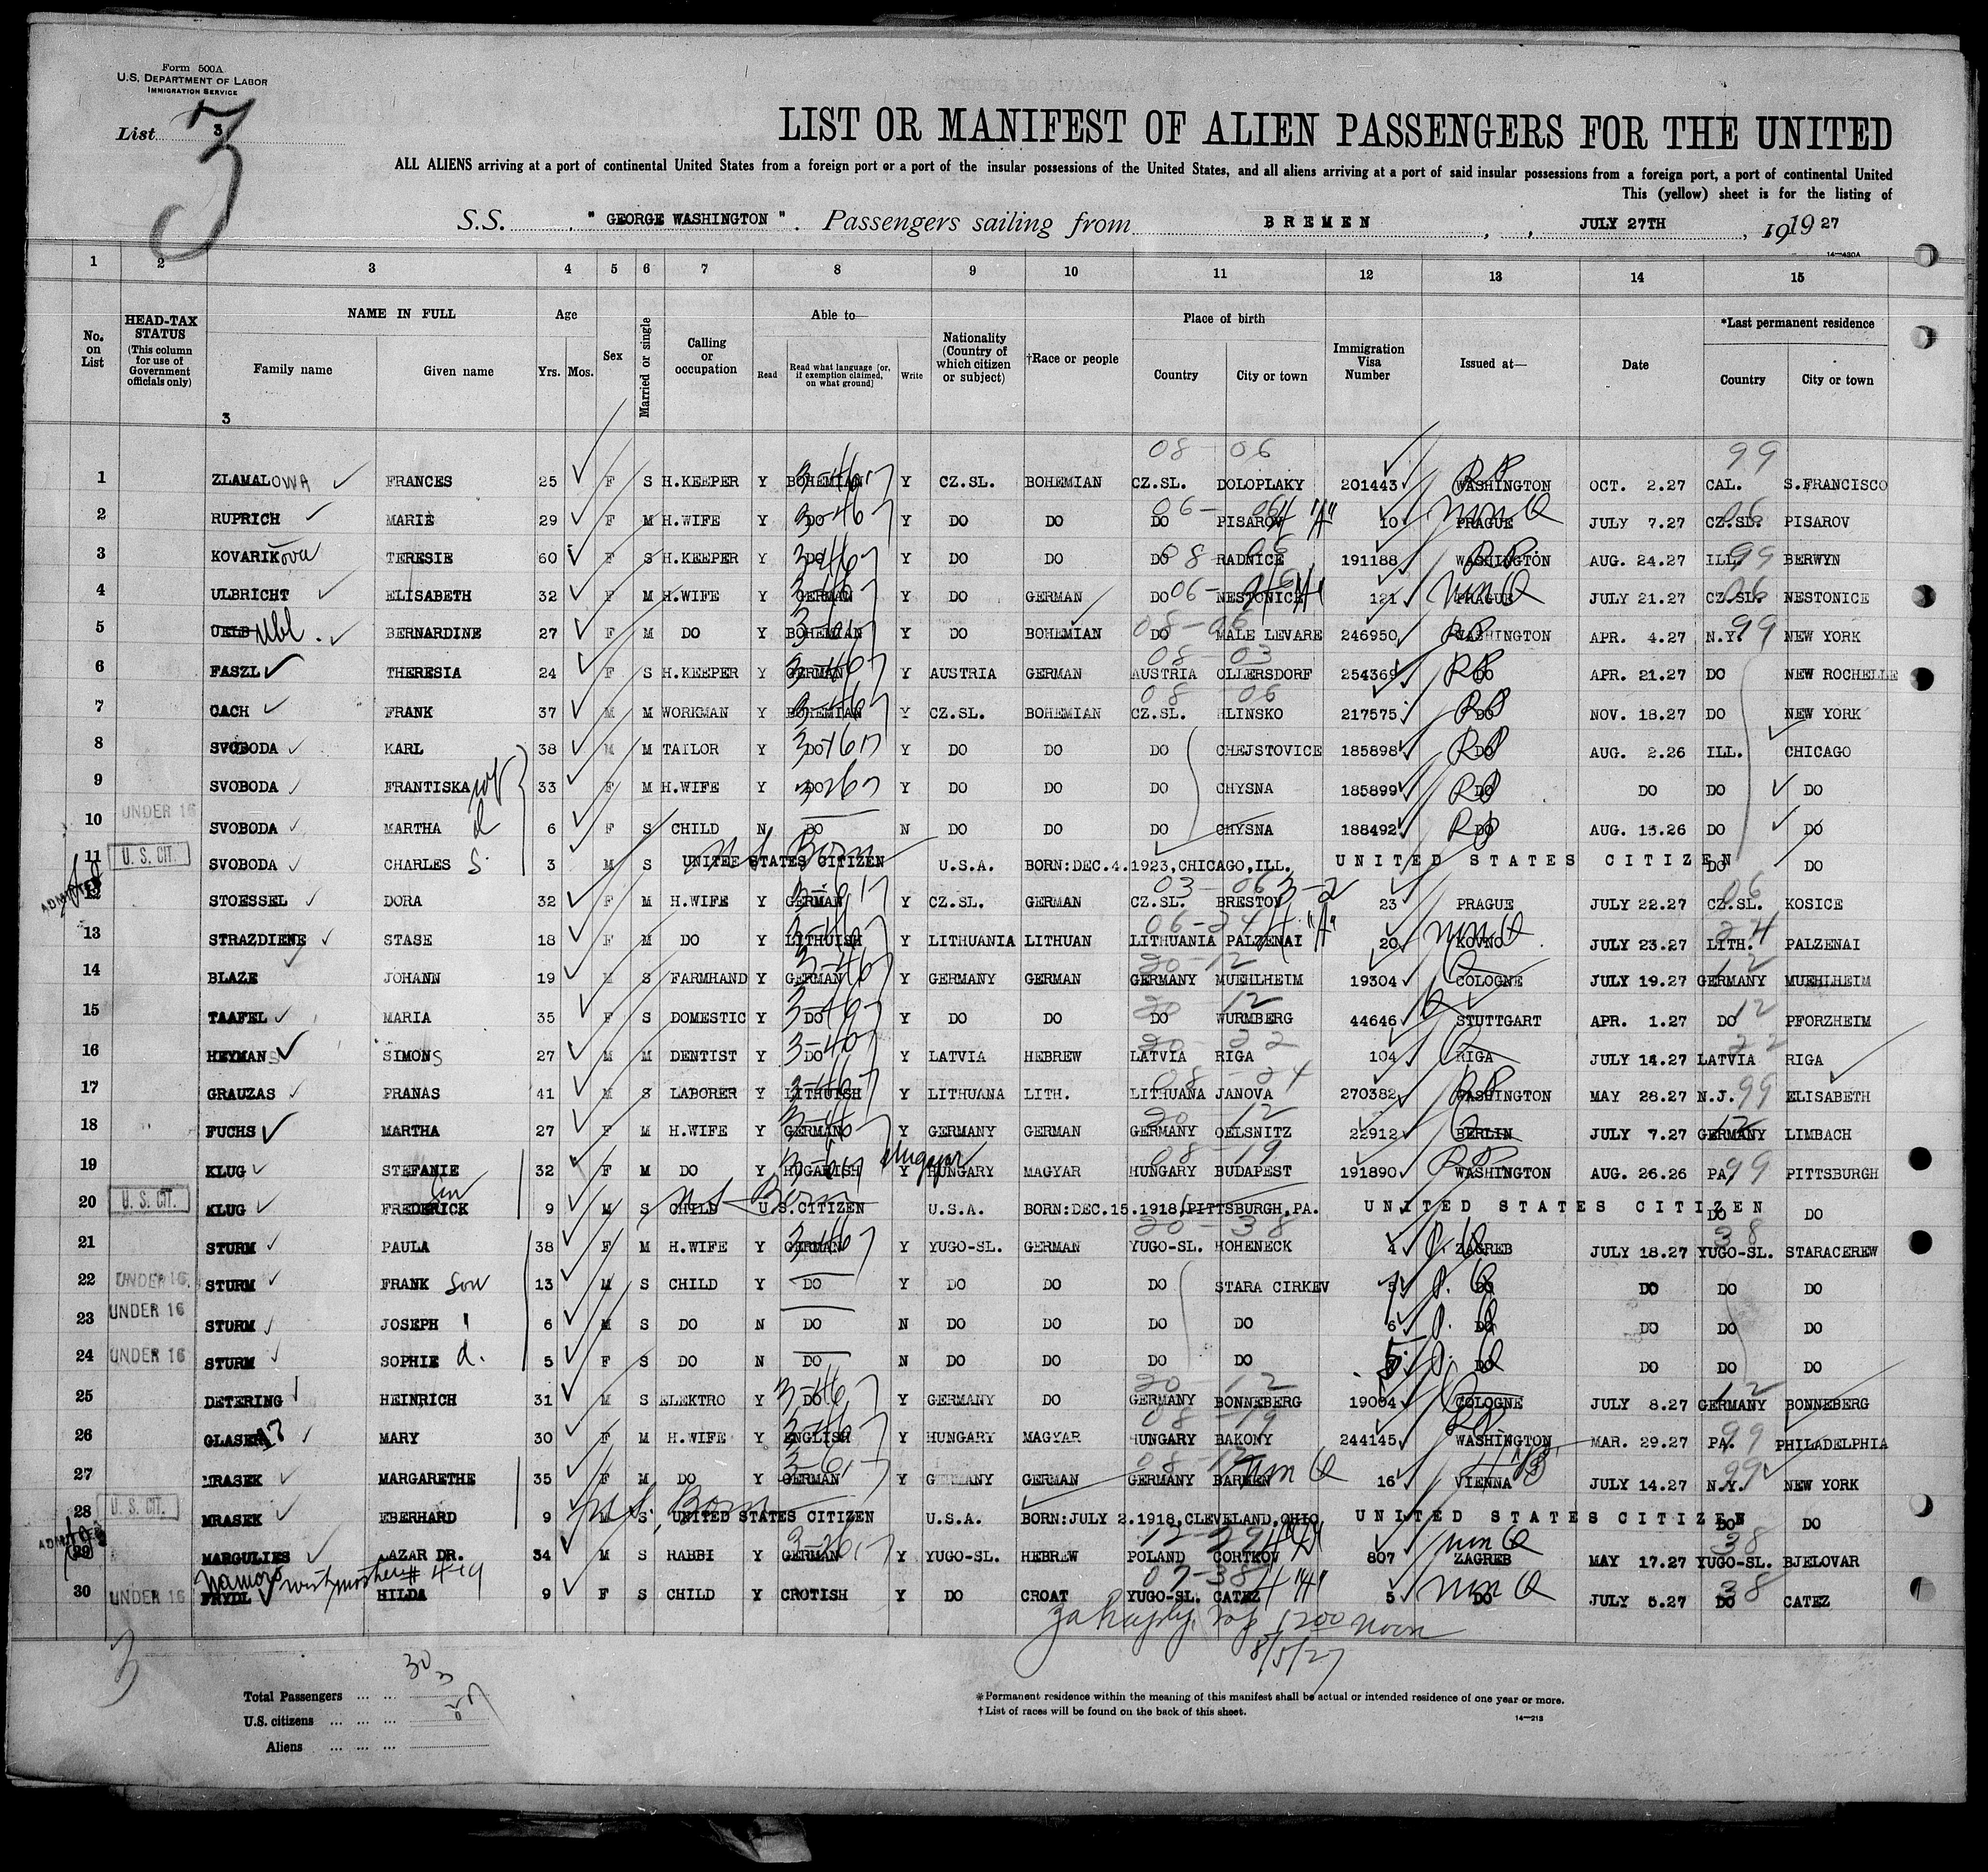 Form 500A
U.S. DEPARTMENT OF LABOR
IMMIGRATION SERVICE
List 3
3
LIST OR MANIFEST OF ALIEN PASSENGERS FOR THE UNITED
ALL ALIENS arriving at a port of continental United States from a foreign port or a port of the insular possessions of the United States, and all aliens arriving at a port of said insular possessions from a foreign port, a port of continental United
This (yellow) sheet is for the listing of
S.S. " GEORGE WASHINGTON ". Passengers sailing from BREMEN, , JULY 27TH, 19 1927
14—430A
1 2 3 4 5 6 7 8 9 10 11 12 13 14 15
No. on List
HEAD-TAX STATUS (This column for use of Government officials only)
NAME IN FULL
Family name Given name
3
Age
Yrs. Mos.
Sex
Married or single
Calling or occupation
Able to—
Read Read what language [or, if exemption claimed, on what ground] Write
Nationality (Country of which citizen or subject)
†Race or people
Place of birth
Country City or town
Immigration Visa Number
Issued at—
Date
*Last permanent residence
Country City or town
08-06 99
1 ZLAMALOWA FRANCES 25 F S H.KEEPER Y BOHEMIAN Y CZ.SL. BOHEMIAN CZ.SL. DOLOPLAKY 201443 WASHINGTON OCT. 2.27 CAL. S.FRANCISCO
2 RUPRICH MARIE 29 F M H.WIFE Y DO Y DO DO DO PISAROV 10 PRAGUE JULY 7.27 CZ.SL. PISAROV
3 KOVARIKova TERESIE 60 F S H.KEEPER Y DO Y DO DO DO RADNICE 191188 WASHINGTON AUG. 24.27 ILL. BERWYN
4 ULBRICHT ELISABETH 32 F M H.WIFE Y GERMAN Y DO GERMAN DO NESTONICE 121 PRAGUE JULY 21.27 CZ.SL. NESTONICE
5 UELB Ubl BERNARDINE 27 F M DO Y BOHEMIAN Y DO BOHEMIAN DO MALE LEVARE 246950 WASHINGTON APR. 4.27 N.Y. NEW YORK
6 FASZL THERESIA 24 F S H.KEEPER Y GERMAN Y AUSTRIA GERMAN AUSTRIA OLLERSDORF 254369 DO APR. 21.27 DO NEW ROCHELLE
7 CACH FRANK 37 M M WORKMAN Y BOHEMIAN Y CZ.SL. BOHEMIAN CZ.SL. HLINSKO 217575 DO NOV. 18.27 DO NEW YORK
8 SVOBODA KARL 38 M M TAILOR Y DO Y DO DO DO CHEJSTOVICE 185898 DO AUG. 2.26 ILL. CHICAGO
9 SVOBODA FRANTISKA wf 33 F M H.WIFE Y DO Y DO DO DO CHYSNA 185899 DO DO DO DO
UNDER 16
10 SVOBODA MARTHA d 6 F S CHILD N DO N DO DO DO CHYSNA 188492 DO AUG. 13.26 DO DO
11 U. S. CIT. SVOBODA CHARLES S. 3 M S UNITED STATES CITIZEN U.S.A. BORN:DEC.4.1923,CHICAGO,ILL. UNITED STATES CITIZEN DO DO
ADMITTED
12 STOESSEL DORA 32 F M H.WIFE Y GERMAN Y CZ.SL. GERMAN CZ.SL. BRESTOV 23 PRAGUE JULY 22.27 CZ.SL. KOSICE
13 STRAZDIENE STASE 18 F M DO Y LITHUISH Y LITHUANIA LITHUAN LITHUANIA PALZENAI 20 KOVNO JULY 23.27 LITH. PALZENAI
14 BLAZE JOHANN 19 M S FARMHAND Y GERMAN Y GERMANY GERMAN GERMANY MUEHLHEIM 19304 COLOGNE JULY 19.27 GERMANY MUEHLHEIM
15 TAAFEL MARIA 35 F S DOMESTIC Y DO Y DO DO DO WURMBERG 44646 STUTTGART APR. 1.27 DO PFORZHEIM
16 HEYMANS SIMONS 27 M M DENTIST Y DO Y LATVIA HEBREW LATVIA RIGA 104 RIGA JULY 14.27 LATVIA RIGA
17 GRAUZAS PRANAS 41 M S LABORER Y LITHUISH Y LITHUANA LITH. LITHUANA JANOVA 270382 WASHINGTON MAY 28.27 N.J. ELISABETH
18 FUCHS MARTHA 27 F M H.WIFE Y GERMAN Y GERMANY GERMAN GERMANY OELSNITZ 22912 BERLIN JULY 7.27 GERMANY LIMBACH
19 KLUG STEFANIE 32 F M DO Y HUGARISH Magyar Y HUNGARY MAGYAR HUNGARY BUDAPEST 191890 WASHINGTON AUG. 26.26 PA. PITTSBURGH
20 U. S. CIT. KLUG FREDERICK 9 M S CHILD U.S.CITIZEN U.S.A. BORN:DEC.15.1918,PITTSBURGH,PA. UNITED STATES CITIZEN DO DO
21 STURM PAULA 38 F M H.WIFE Y GERMAN Y YUGO-SL. GERMAN YUGO-SL. HOHENECK 4 ZAGREB JULY 18.27 YUGO-SL. STARACEREW
22 UNDER 16 STURM FRANK Son 13 M S CHILD Y DO Y DO DO DO STARA CIRKEV 5 DO DO DO DO
23 UNDER 16 STURM JOSEPH " 6 M S DO N DO N DO DO DO DO 6 DO DO DO DO
24 UNDER 16 STURM SOPHIE d. 5 F S DO N DO N DO DO DO DO 5 DO DO DO DO
25 DETERING HEINRICH 31 M S ELEKTRO Y DO Y GERMANY DO GERMANY BONNEBERG 19004 COLOGNE JULY 8.27 GERMANY BONNEBERG
26 GLASER MARY 30 F M H.WIFE Y ENGLISH Y HUNGARY MAGYAR HUNGARY BAKONY 244145 WASHINGTON MAR. 29.27 PA. PHILADELPHIA
27 MRASEK MARGARETHE 35 F M DO Y GERMAN Y GERMANY GERMAN GERMANY BARMEN 16 VIENNA JULY 14.27 N.Y. NEW YORK
28 U. S. CIT. MRASEK EBERHARD 9 M S UNITED STATES CITIZEN U.S.A. BORN:JULY 2.1918,CLEVELAND,OHIO UNITED STATES CITIZEN DO DO
ADMITTED
29 MARGULIES LAZAR DR. 34 M S RABBI Y GERMAN Y YUGO-SL. HEBREW POLAND CORTKOV 807 ZAGREB MAY 17.27 YUGO-SL. BJELOVAR
30 UNDER 16 FRYDL HILDA 9 F S CHILD Y CROTISH Y DO CROAT YUGO-SL. CATEZ 5 DO JULY 5.27 DO CATEZ
1200 noon
8/5/27
3
Total Passengers ... ... 30
U.S. citizens ... ... ... 3
Aliens ... ... ... 27
*Permanent residence within the meaning of this manifest shall be actual or intended residence of one year or more.
†List of races will be found on the back of this sheet.
14—213